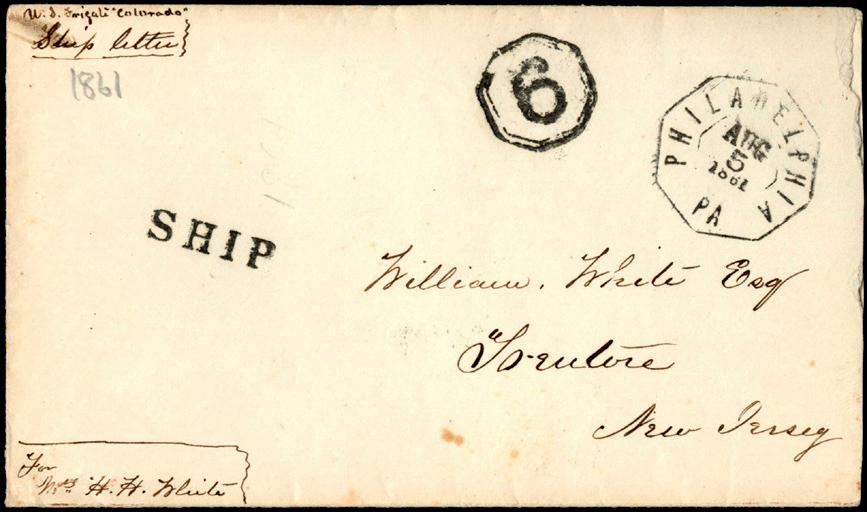 U.S. Frigate "Colorado"
Ship letter
1861
6
PHILADELPHIA
AUG
5
1861
PA
SHIP
William. White Esq
Trenton
New Jersey
For
Mrs H. H. White